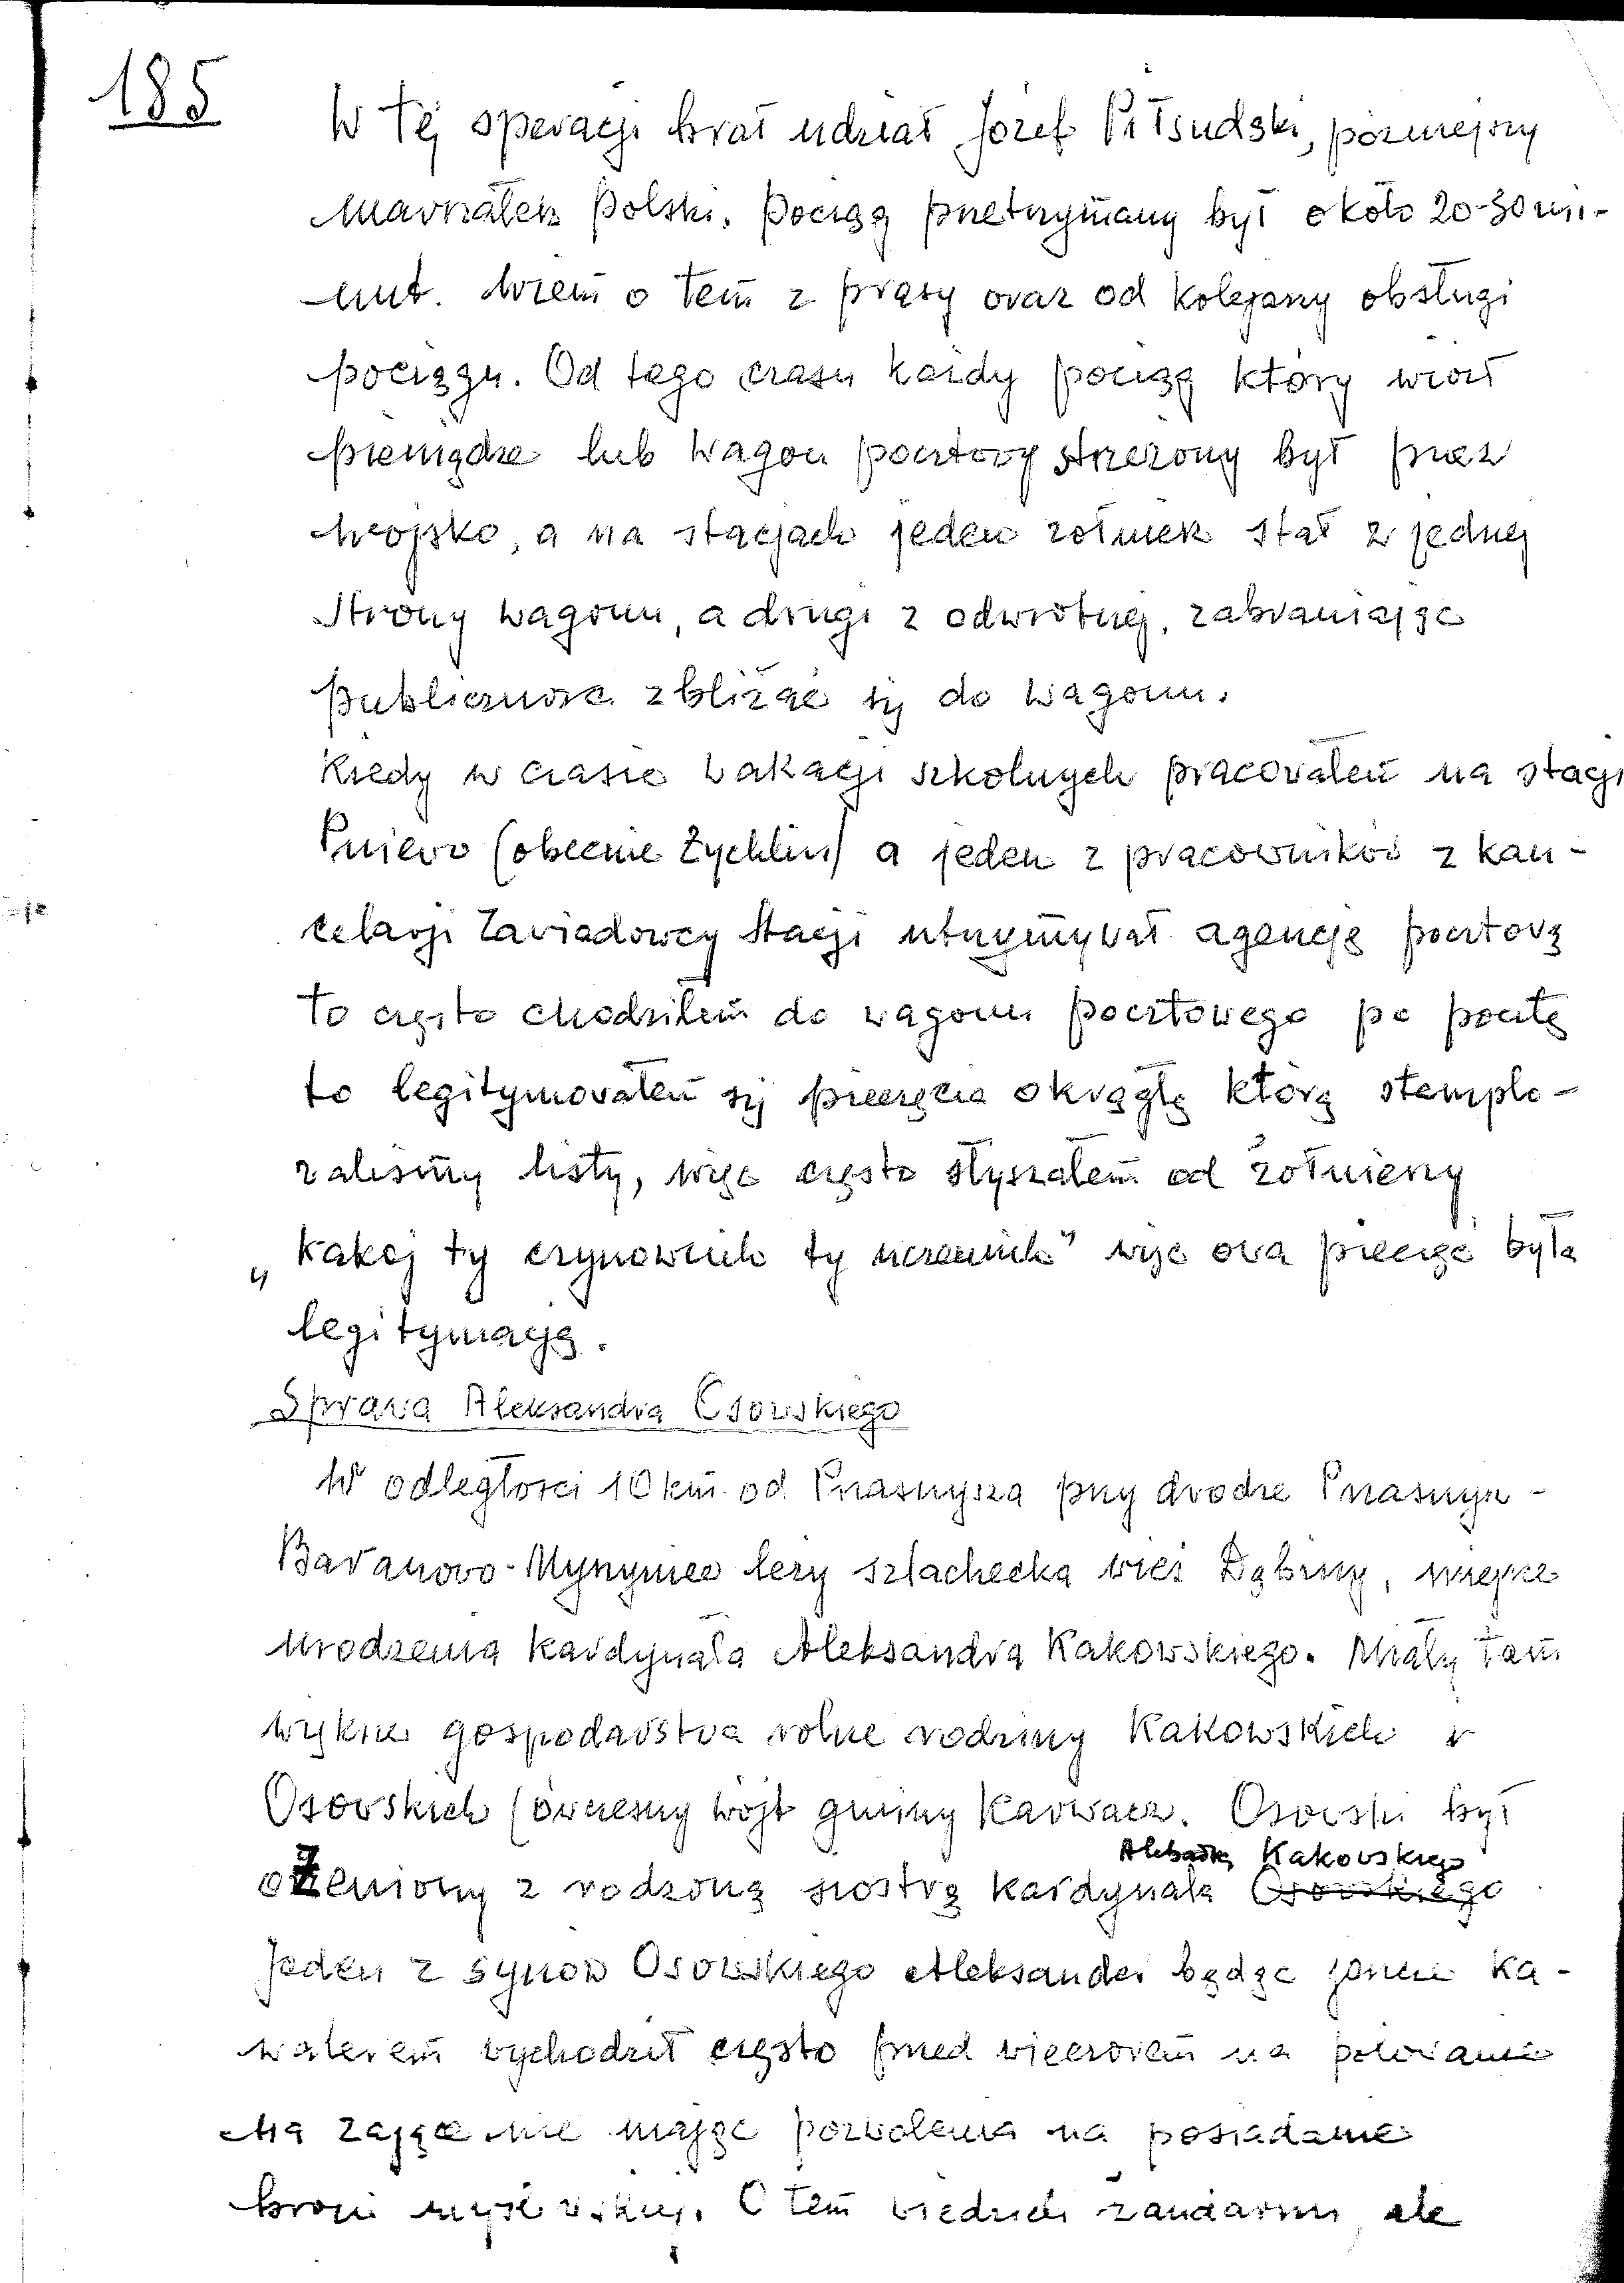 185
W tej operacji brał udział Józef Piłsudski, późniejszy
Marszałek Polski. Pociąg przetrzymany był około 20-30 mi-
nut. Wiem o tem z prasy oraz od kolejarzy obsługi
pociągu. Od tego czasu każdy pociąg który wiózł
pieniądze lub wagon pocztowy strzeżony był przez
wojsko, a na stacjach jeden żołnierz stał z jednej
strony wagonu, a drugi z odwrotnej, zabraniając
publiczność zbliżać się do wagonu.
Kiedy w czasie wakacji szkolnych pracowałem na stacji
Pniewo (obecnie Żychlin) a jeden z pracowników z kan-
celarji Zawiadowcy Stacji utrzymywał agencję pocztową
to często chodziłem do wagonu pocztowego po pocztę
to legitymowałem się pieczęcią okrągłą którą stemplo-
waliśmy listy, więc często słyszałem od żołnierzy
„Kakoj ty czynownik ty uczennik" więc owa pieczęć była
legitymacją.
Sprawa Aleksandra Osowskiego
W odległości 10 km. od Przasnysza przy drodze Przasnysz-
Baranowo-Myszyniec leży szlachecka wieś Dębiny, miejsce
urodzenia kardynała Aleksandra Kakowskiego. Miały tam
większe gospodarstwa rolne rodziny Kakowskich i
Osowskich (ówczesny wójt gminy Karwacz. Osowski był
Aleksandra Kakowskiego
ożeniony z rodzoną siostrą kardynała Osowskiego
Jeden z synów Osowskiego Aleksander będąc jeszcze ka-
walerem wychodził często przed wieczorem na polowanie
na zające nie mając pozwolenia na posiadanie
broni myśliwskiej. O tem wiedzieli żandarmi, ale